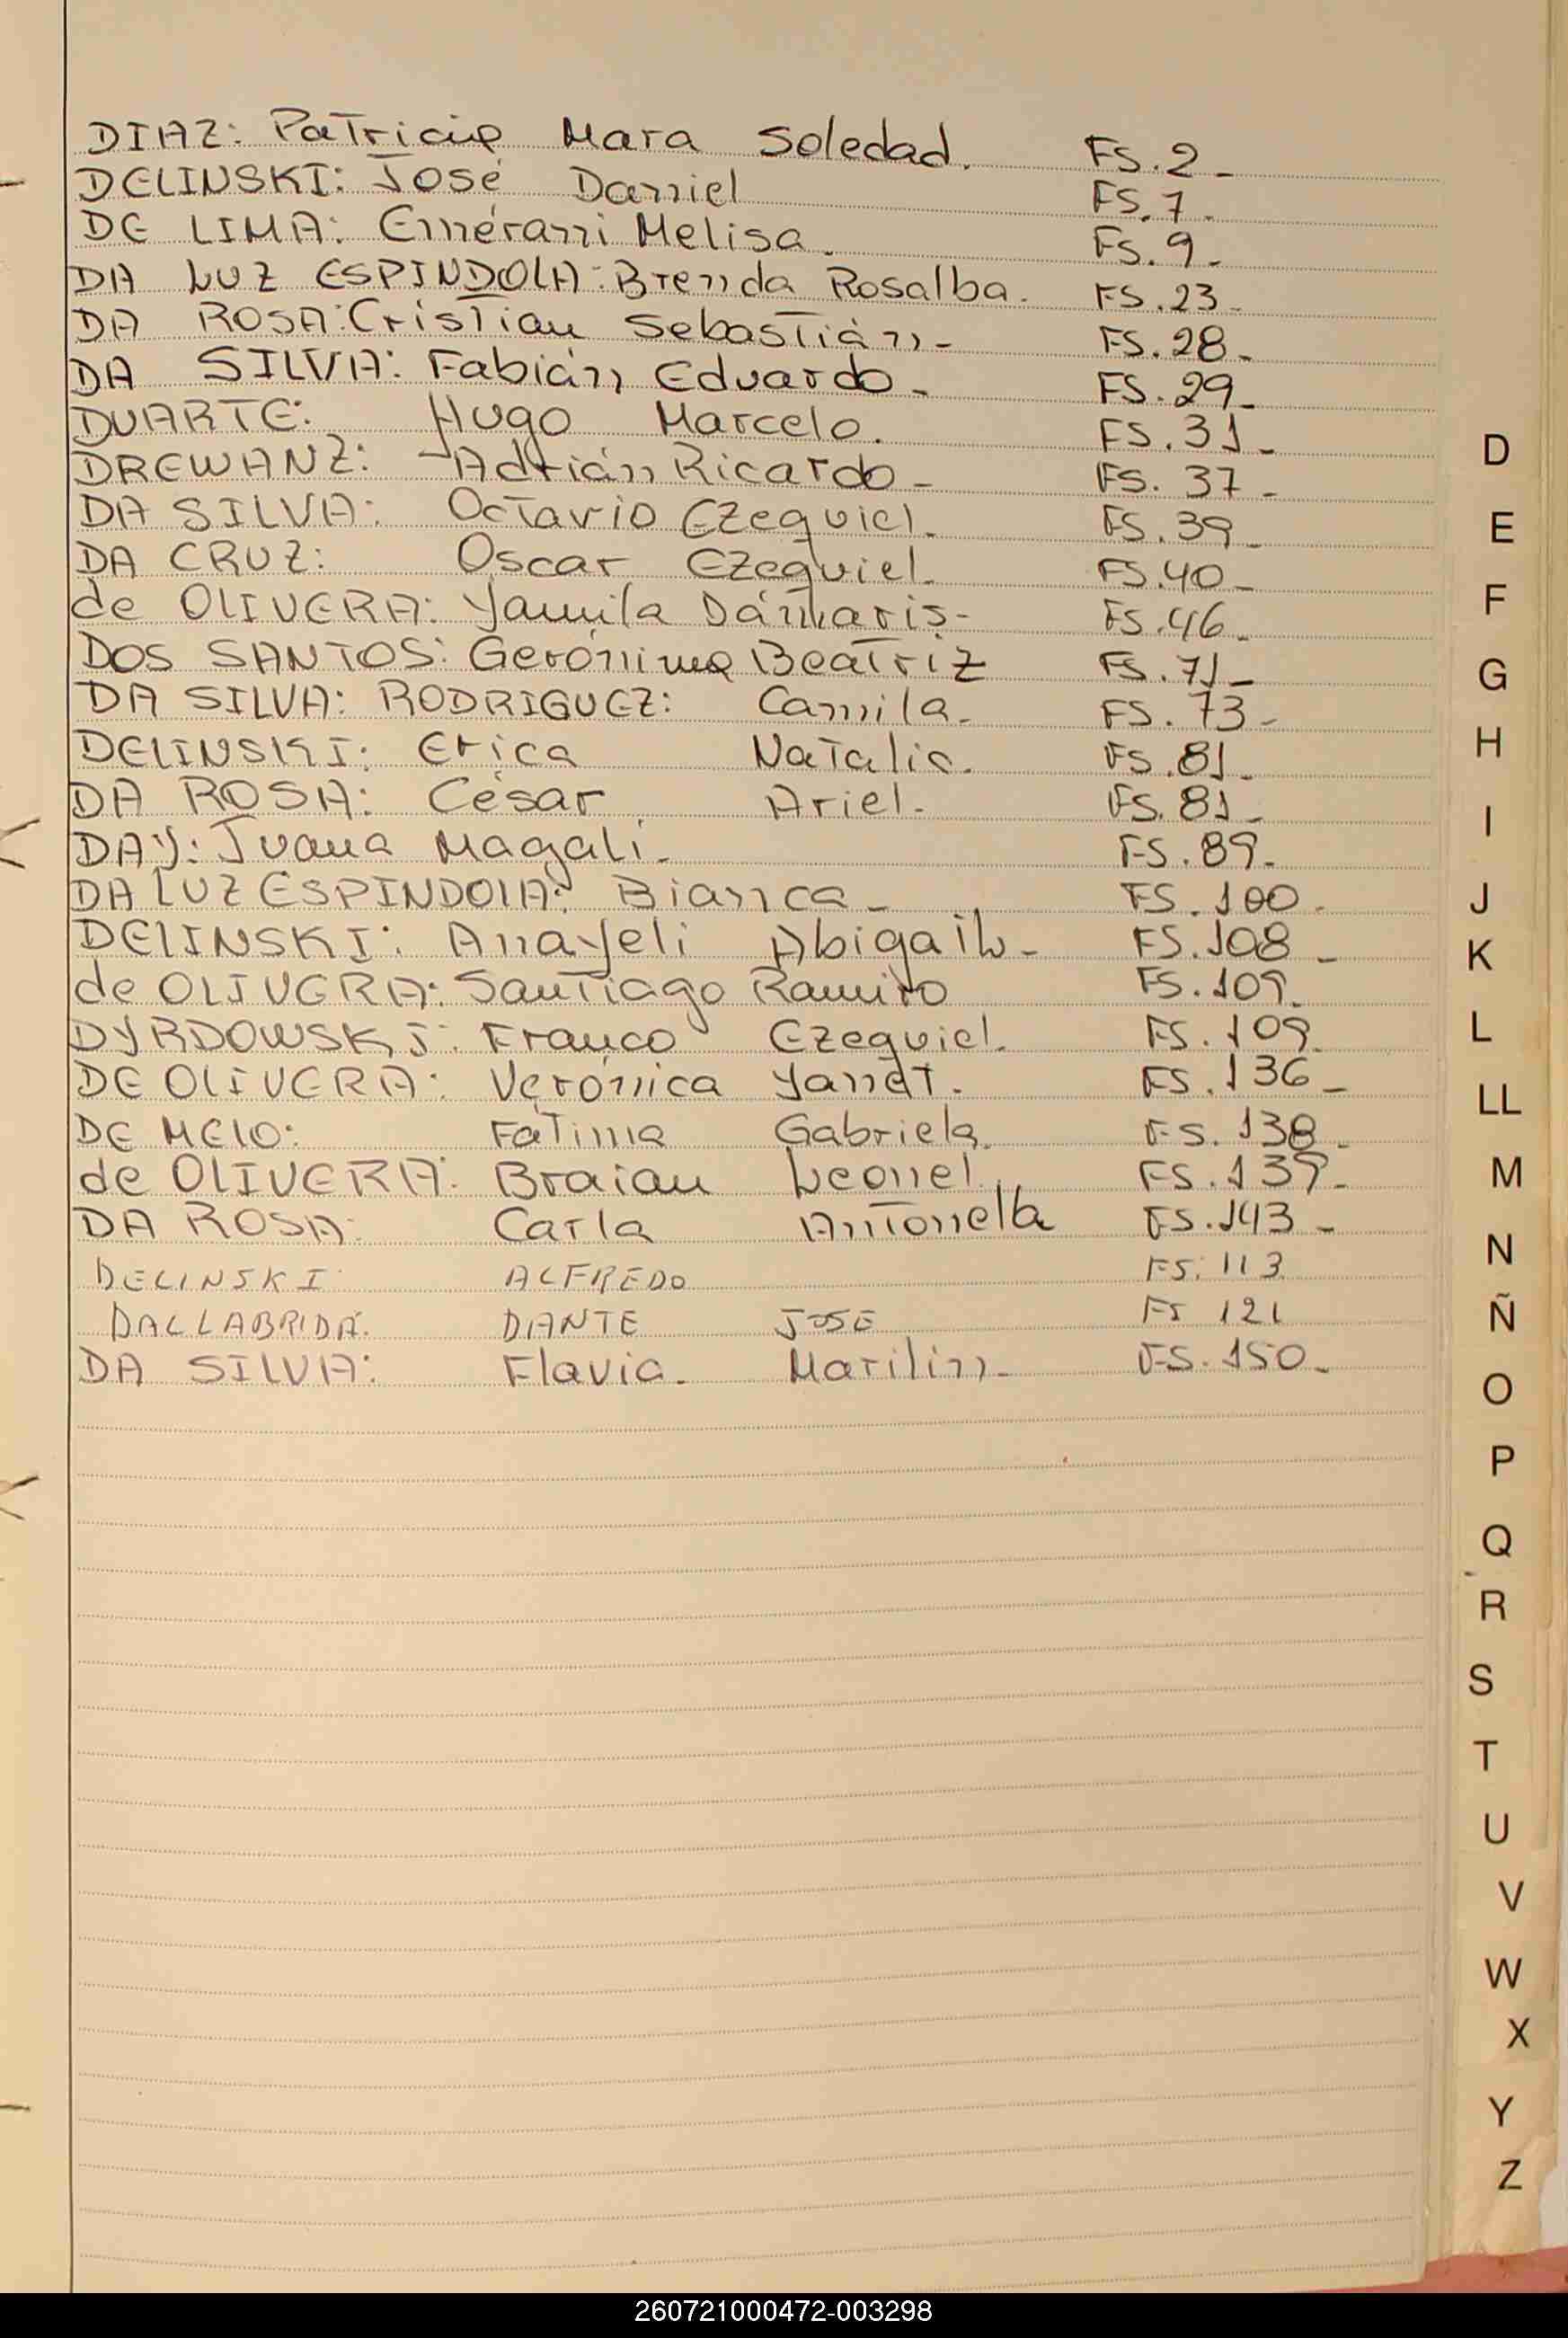 DIAZ: Patricia Mara Soledad. FS. 2 -
DELINSKI: José Daniel FS. 7.
DE LIMA: Emérani Melisa. FS. 9 -
DA LUZ ESPINDOLA: Brenda Rosalba. FS. 23 -
DA ROSA: Cristian Sebastián - FS. 28 -
DA SILVA: Fabián Eduardo - FS. 29 -
DUARTE: Hugo Marcelo. FS. 31 -
DREWANZ: Adrián Ricardo - FS. 37 -
DA SILVA: Octavio Ezequiel. FS. 39 -
DA CRUZ: Oscar Ezequiel. FS. 40 -
de OLIVERA: Yamila Dámaris - FS. 46 -
DOS SANTOS: Gerónima Beatriz FS. 71 -
DA SILVA: RODRIGUEZ: Camila - FS. 73 -
DELINSKI: Erica Natalia. FS. 81 -
DA ROSA: César Ariel - FS. 81 -
DAY: Juana Magalí - FS. 89 -
DA LUZ ESPINDOLA: Bianca - FS. 100 -
DELINSKI: Anayeli Abigail - FS. 108 -
de OLIVERA: Santiago Ramiro FS. 109.
DYRDOWSKI: Franco Ezequiel. FS. 109
DE OLIVERA: Verónica Yanet. FS. 136 -
DE MELO: Fatima Gabriela. FS. 138 -
de OLIVERA: Braian Leonel. FS. 139 -
DA ROSA: Carla Antonella FS. 143 -
DELINSKI ALFREDO FS. 113
DALLABRIDA. DANTE JOSE FS 121
DA SILVA: Flavia. Marilin - FS. 150 -
D
E
F
G
H
I
J
K
L
LL
M
N
Ñ
O
P
Q
R
S
T
U
V
W
X
Y
Z
260721000472-003298